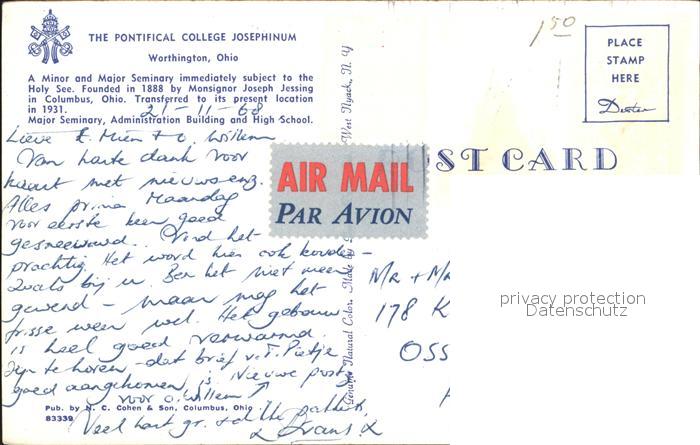 THE PONTIFICAL COLLEGE JOSEPHINUM
Worthington, Ohio
A Minor and Major Seminary immediately subject to the
Holy See. Founded in 1888 by Monsignor Joseph Jessing
in Columbus, Ohio. Transferred to its present location
in 1931.
21-11-68
Major Seminary, Administration Building and High School.
Lieve t. Mien + o. Willem
Van harte dank voor
kaart met nieuws enz.
Alles prima Maandag
voor eerste keer goed
gesneeuwd.. Vind het
prachtig. Het word hier ook kouder -
zoals bij u. Ben het niet meer
gewend - maar mag het
frisse weer wel. Het gebouw
is heel goed verwarmd.
Fijn te horen - dat brief v. T. Pietje
goed aangekomen is. Nieuwe postz
voor o. Willem ↑
Pub. by N. C. Cohen & Son, Columbus, Ohio
83339
Veel hart. gr. +
Frans
Genuine Natural Color. Made by
West Nyack, N. Y
1 50
PLACE
STAMP
HERE
Dexter
POST CARD
AIR MAIL
PAR AVION
Mr + Mr
178 K
OSS
privacy protection
Datenschutz